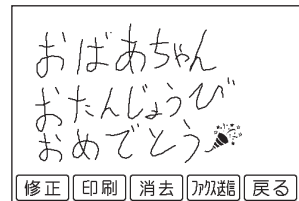 おばあちゃん
おたんじょうび
おめでとう🎉
修正 印刷 消去 ﾌｧｸｽ送信 戻る